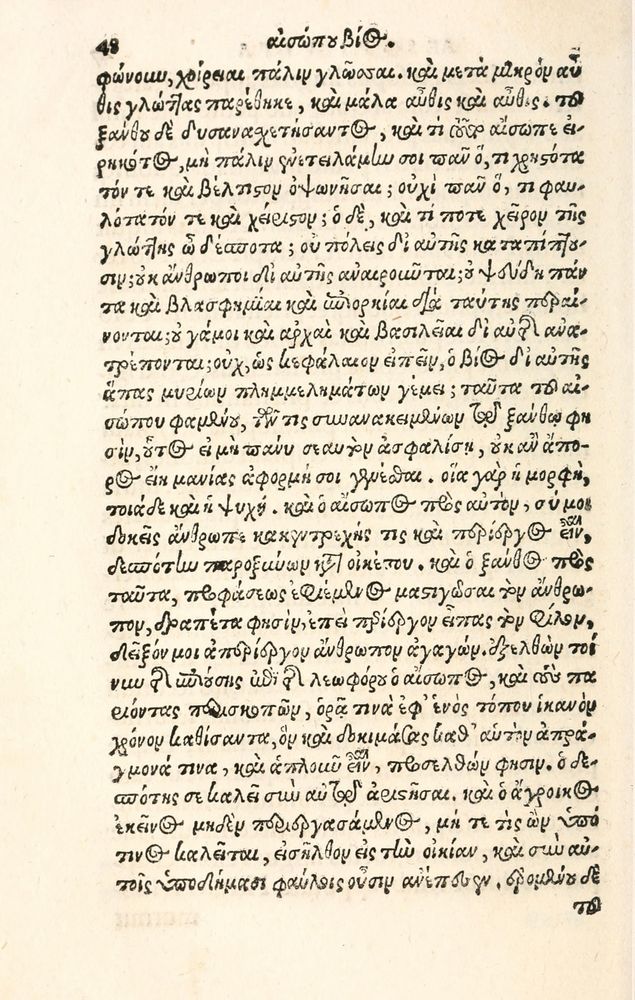 48 αἰσώπου βίος.
φώνουν, χοίρειαι πάλιν γλῶσσαι. καὶ μετὰ μικρὸν αὖ-
θις γλώττας παρέθηκε, καὶ μάλα αὖθις καὶ αὖθις. τοῦ
ξάνθου δὲ δυσανασχετήσαντος, καὶ τί σοι αἴσωπε εἰ-
ρηκότος, μὴ πάλιν ἐνετειλάμην σοι πᾶν ὅ, τι χρηστότα
τόν τε καὶ βέλτιστον ὀψωνῆσαι; οὐχὶ πᾶν ὅ, τι φαυ-
λότατόν τε καὶ χείριστον; ὁ δὲ, καὶ τί ποτε χεῖρον τῆς
γλώττης ὦ δέσποτα; οὐ πόλεις δι' αὐτῆς καταπίπτου-
σιν; οὐκ ἄνθρωποι δι' αὐτῆς ἀναιροῦνται; οὐ ψεύδη πάν
τα καὶ βλασφημίαι καὶ ἐπιορκίαι διὰ ταύτης περαί-
νονται; οὐ γάμοι καὶ ἀρχαὶ καὶ βασιλεῖαι δι' αὐτῆς ἀνα-
τρέπονται; οὐχ, ὡς κεφάλαιον εἰπεῖν, ὁ βίος δι' αὐτῆς
ἅπας μυρίων πλημμελημάτων γέμει; ταῦτα τοῦ αἰ-
σώπου φαμένου, τῶν τις συνανακειμένων τῷ ξάνθῳ φη
σὶν, οὗτος εἰ μὴ πάνυ σεαυτὸν ἀσφαλίσῃ, οὐκ ἂν ἄπο-
ρος εἴη μανίας ἀφορμή σοι γενέσθαι. οἵα γὰρ ἡ μορφὴ,
τοιάδε καὶ ἡ ψυχή. καὶ ὁ αἴσωπος πρὸς αὐτὸν, σύ μοι
δοκεῖς ἄνθρωπε κακεντρεχής τις καὶ περίεργος εἶναι,
δεσπότην παροξύνων κατὰ οἰκέτου. καὶ ὁ ξάνθος πρὸς
ταῦτα, προφάσεως ἐφιέμενος μαστιγῶσαι τὸν ἄνθρω-
πον, δραπέτα φησὶν, ἐπεὶ περίεργον εἶπας τὸν φίλον,
δεῖξόν μοι ἀπερίεργον ἄνθρωπον ἀγαγών. ἐξελθὼν τοί
νυν τῆς ἐπιούσης ἐπὶ τῆς λεωφόρου ὁ αἴσωπος, καὶ τοὺς πα
ριόντας περισκοπῶν, ὁρᾷ τινὰ ἐφ' ἑνὸς τόπου ἱκανὸν
χρόνον καθίσαντα, ὃν καὶ δοκιμάσας καθ' αὑτὸν ἀπρά-
γμονά τινα, καὶ ἁπλοῦν εἶναι, προσελθών φησιν. ὁ δε-
σπότης σε καλεῖ σὺν αὐτῷ ἀριστῆσαι. καὶ ὁ ἄγροικος
ἐκεῖνος μηδὲν περιεργασάμενος, μήτε τίς ὢν ὑπό
τινος καλεῖται, εἰσῆλθεν εἰς τὴν οἰκίαν, καὶ σὺν αὐ-
τοῖς ὑποδήμασι φαύλοις οὖσιν ἀνέπεσεν. ἐρομένου δὲ
τοῦ